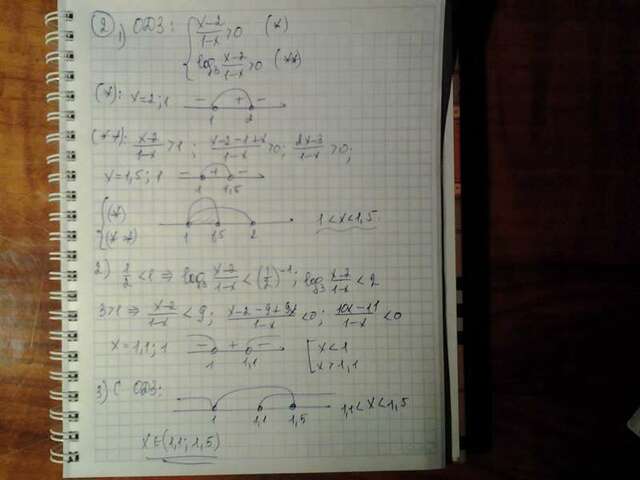 ② 1) ОДЗ: { (x-2)/(1-x) > 0 (*)
log₃ (x-2)/(1-x) > 0 (**)
(*): x=2; 1 − + −
1 2
(**): (x-2)/(1-x) > 1 ; (x-2-1+x)/(1-x) > 0; (2x-3)/(1-x) > 0;
x=1,5; 1 − + −
1 1,5
{ (*)
(**) 1 1,5 2 1 < x < 1,5
2) 1/2 < 1 ⇒ log₃ (x-2)/(1-x) < (1/2)⁻¹; log₃ (x-2)/(1-x) < 2
3>1 ⇒ (x-2)/(1-x) < 9; (x-2-9+9x)/(1-x) < 0; (10x-11)/(1-x) < 0
x=1,1; 1 − + − [ x<1
1 1,1 x>1,1
3) С ОДЗ:
1 1,1 1,5 1,1 < x < 1,5
x∈(1,1; 1,5)